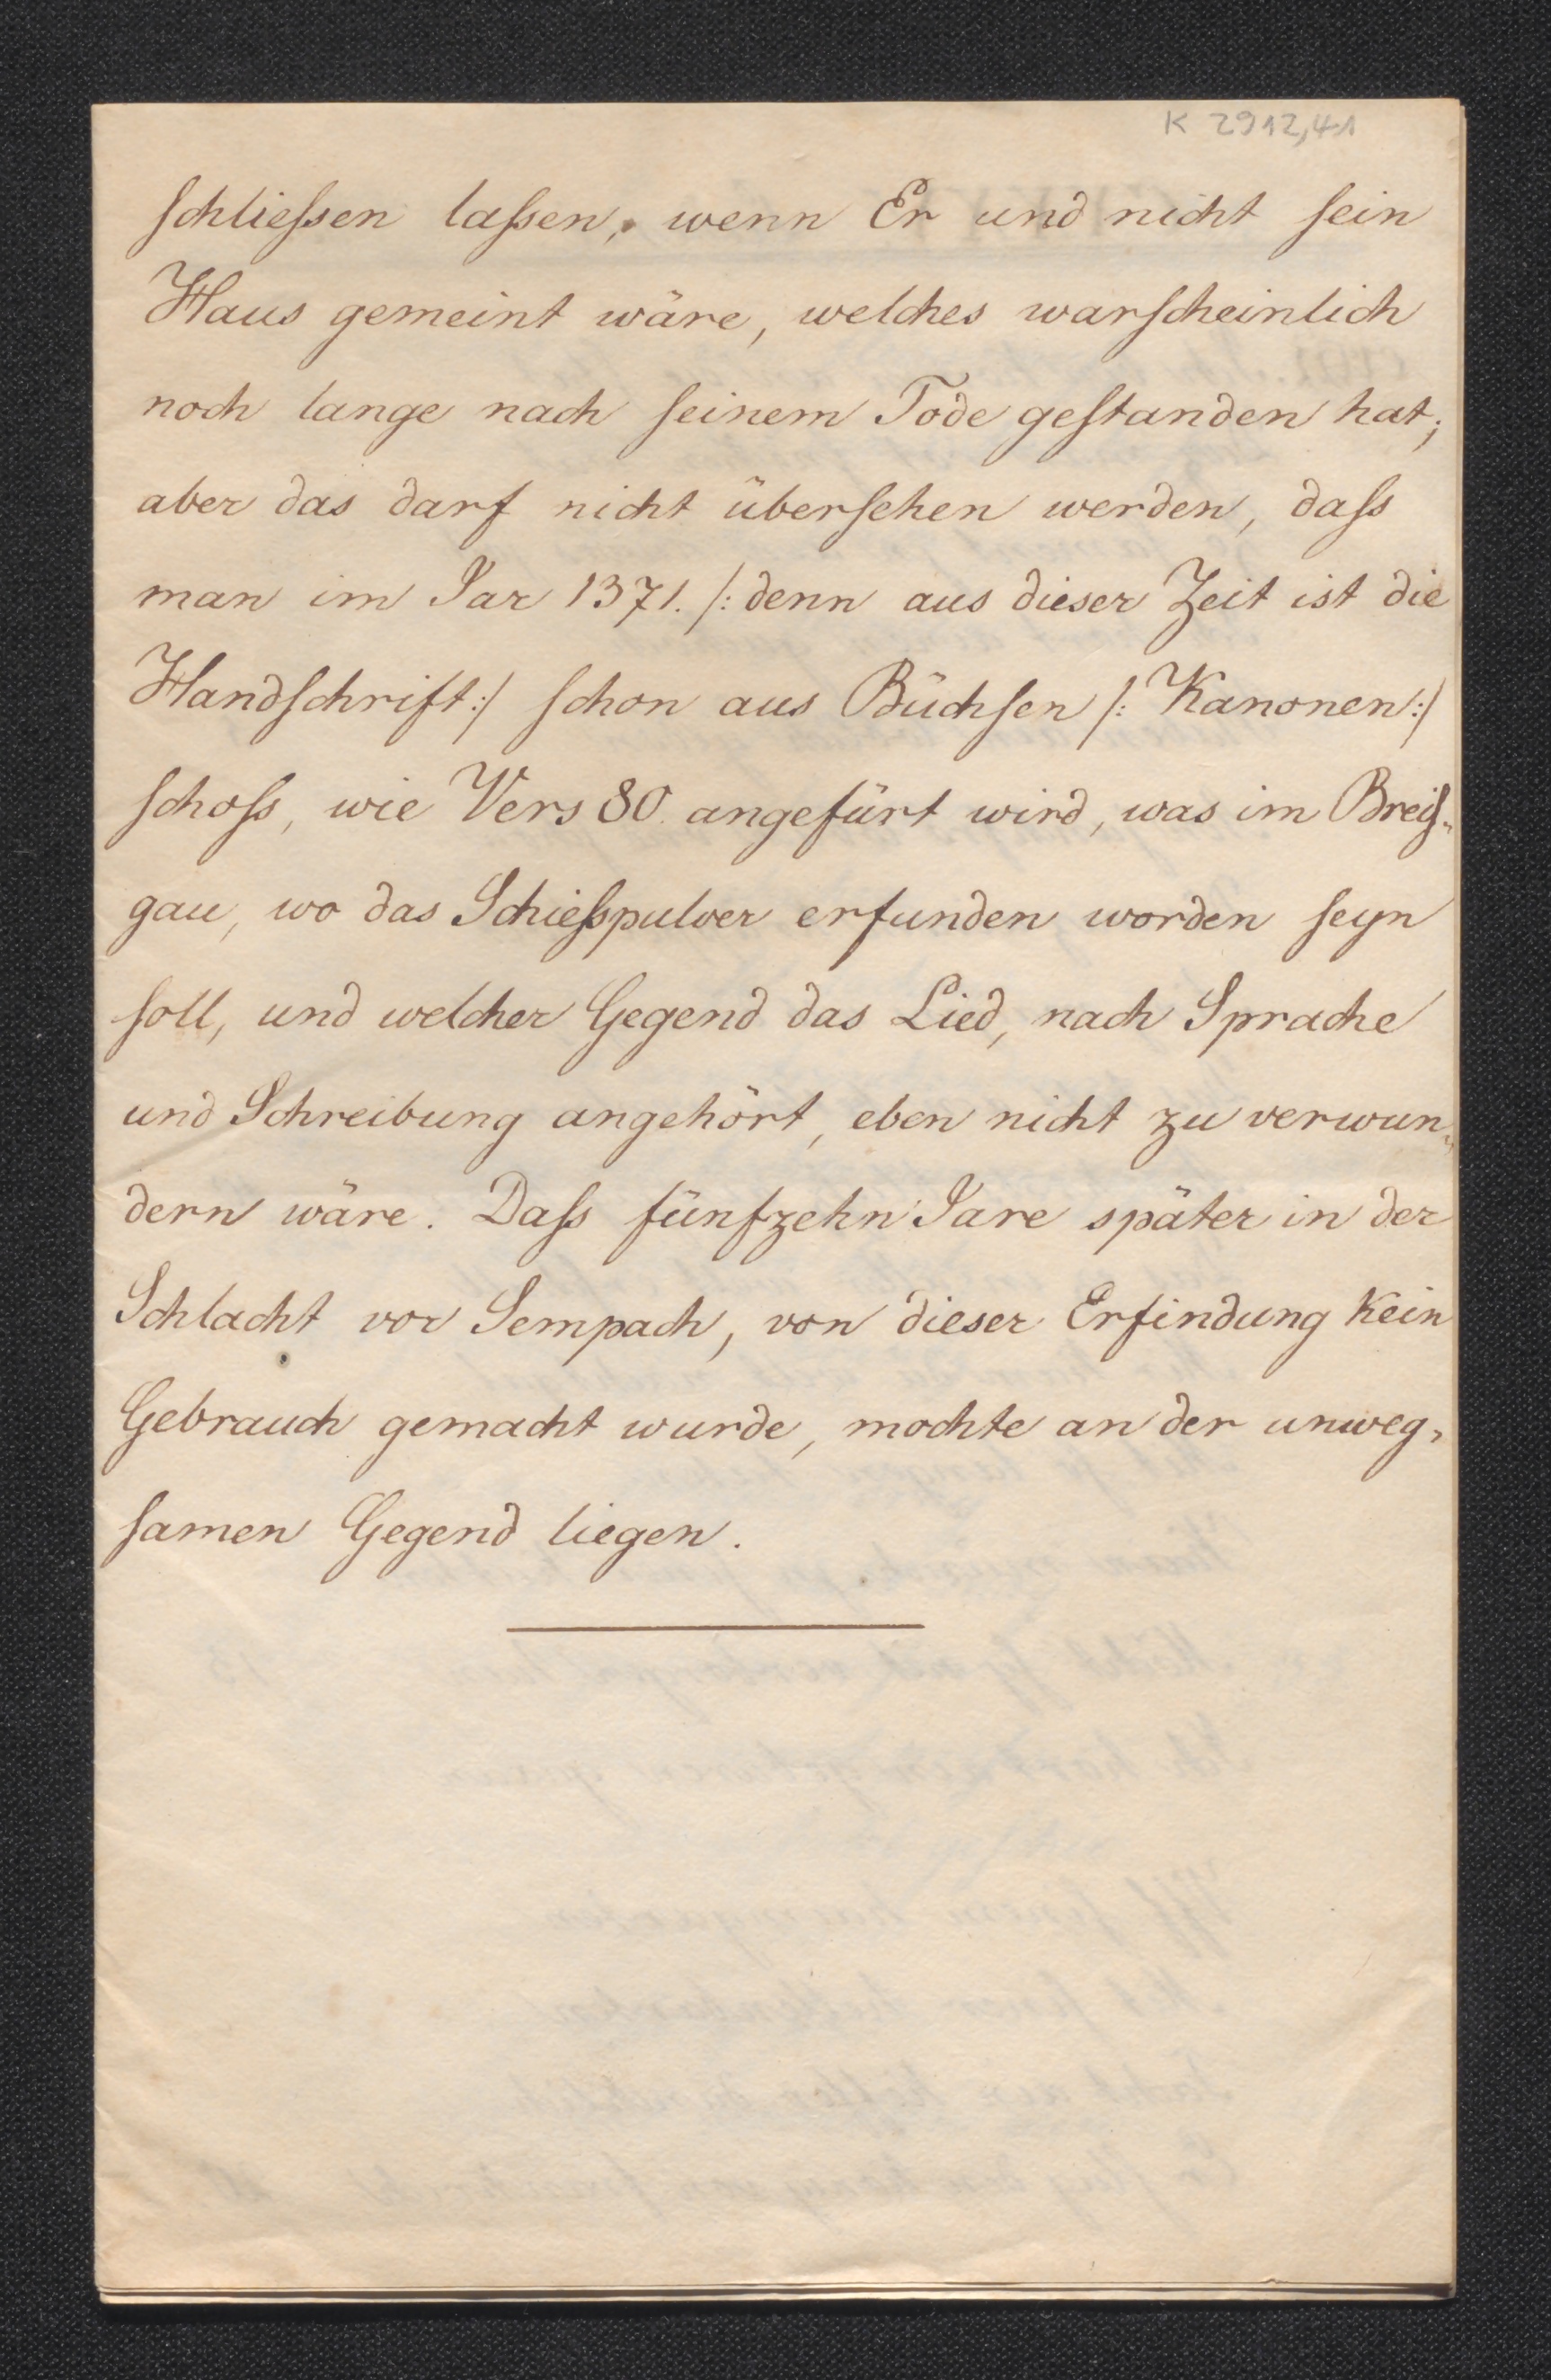 K 2912,41
ſchlieſsen laſsen, wenn Er und nicht ſein
Haus gemeint wäre, welches warſcheinlich
noch lange nach ſeinem Tode geſtanden hat;
aber das darf nicht überſehen werden, daſs
man im Jar 1371. /: denn aus dieser Zeit ist die
Handſchrift :/ ſchon aus Büchſen /: Kanonen :/
ſchoſs, wie Vers 80. angefürt wird, was im Breiſ⸗
gau, wo das Schieſspulver erfunden worden ſeyn
ſoll, und welcher Gegend das Lied, nach Sprache
und Schreibung angehört, eben nicht zu verwun⸗
dern wäre. Daſs fünfzehn Jare später in der
Schlacht vor Sempach, von dieser Erfindung kein
Gebrauch gemacht wurde, mochte an der unweg⸗
ſamen Gegend liegen.